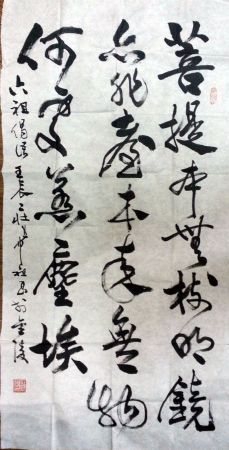 菩提本無樹明鏡
亦非臺本來無物
何處惹塵埃
六祖偈語 壬辰
金陵